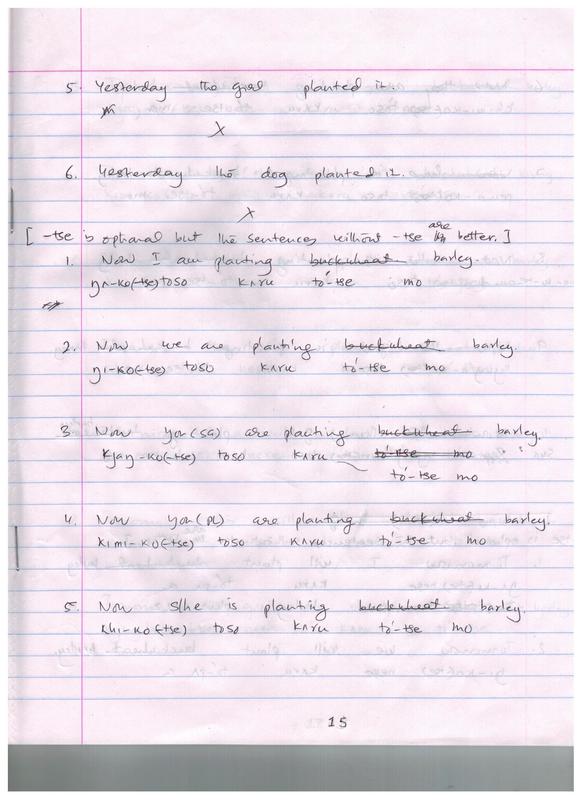 5. Yesterday the girl planted it.
X
6. Yesterday the dog planted it.
X
[ -tse is optional but the sentences without -tse are better. ]
1. Now I am planting buckwheat barley.
ŋʌ-ko(-tse) toso kʌru tó-tse mo
2. Now we are planting buckwheat barley.
ŋi-ko(-tse) toso kʌru tó-tse mo
3. Now you (SG) are planting buckwheat barley.
kjaŋ-ko(-tse) toso kʌru tó-tse mo
tó-tse mo
4. Now you (PL) are planting buckwheat barley.
kimi-ko(-tse) toso kʌru tó-tse mo
5. Now S/he is planting buckwheat barley.
khi-ko(-tse) toso kʌru tó-tse mo
15